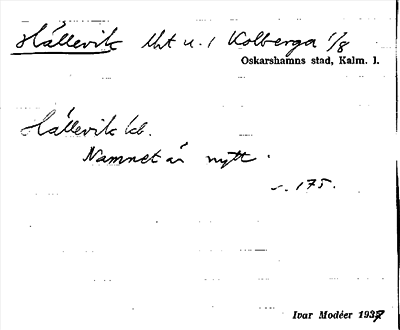 Hällevik lht u. / Kolberga 1/8
Oskarshamns stad, Kalm. l.
Hällevik
Namnet är nytt.
s. 175.
Ivar Modéer 1937